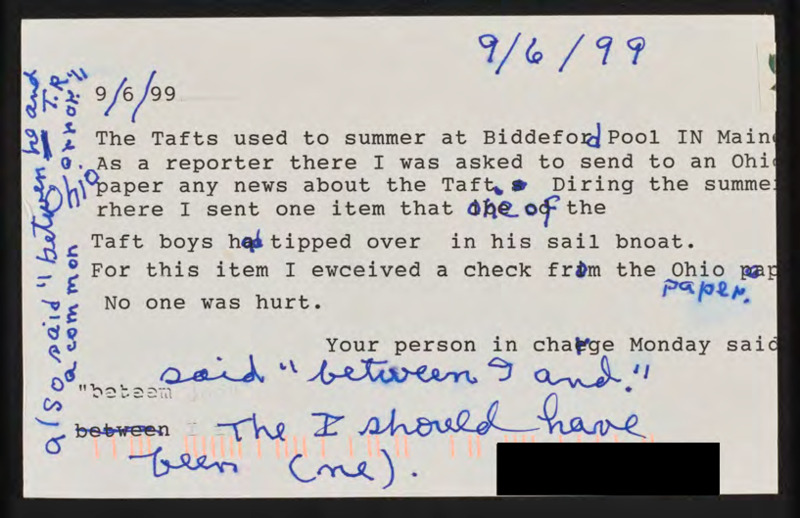 9/6/99
9/6/99
The Tafts used to summer at Biddeford Pool IN Maine
As a reporter there I was asked to send to an Ohio
paper any news about the Taft.s Diring the summer
rhere I sent one item that one of the
Taft boys had tipped over in his sail bnoat.
For this item I ewceived a check from the Ohio pap
paper.
No one was hurt.
Your person in charge Monday said
said "between I and."
"beteem
between The I should have
been (me).
also said "between he and T.R."
a common error"